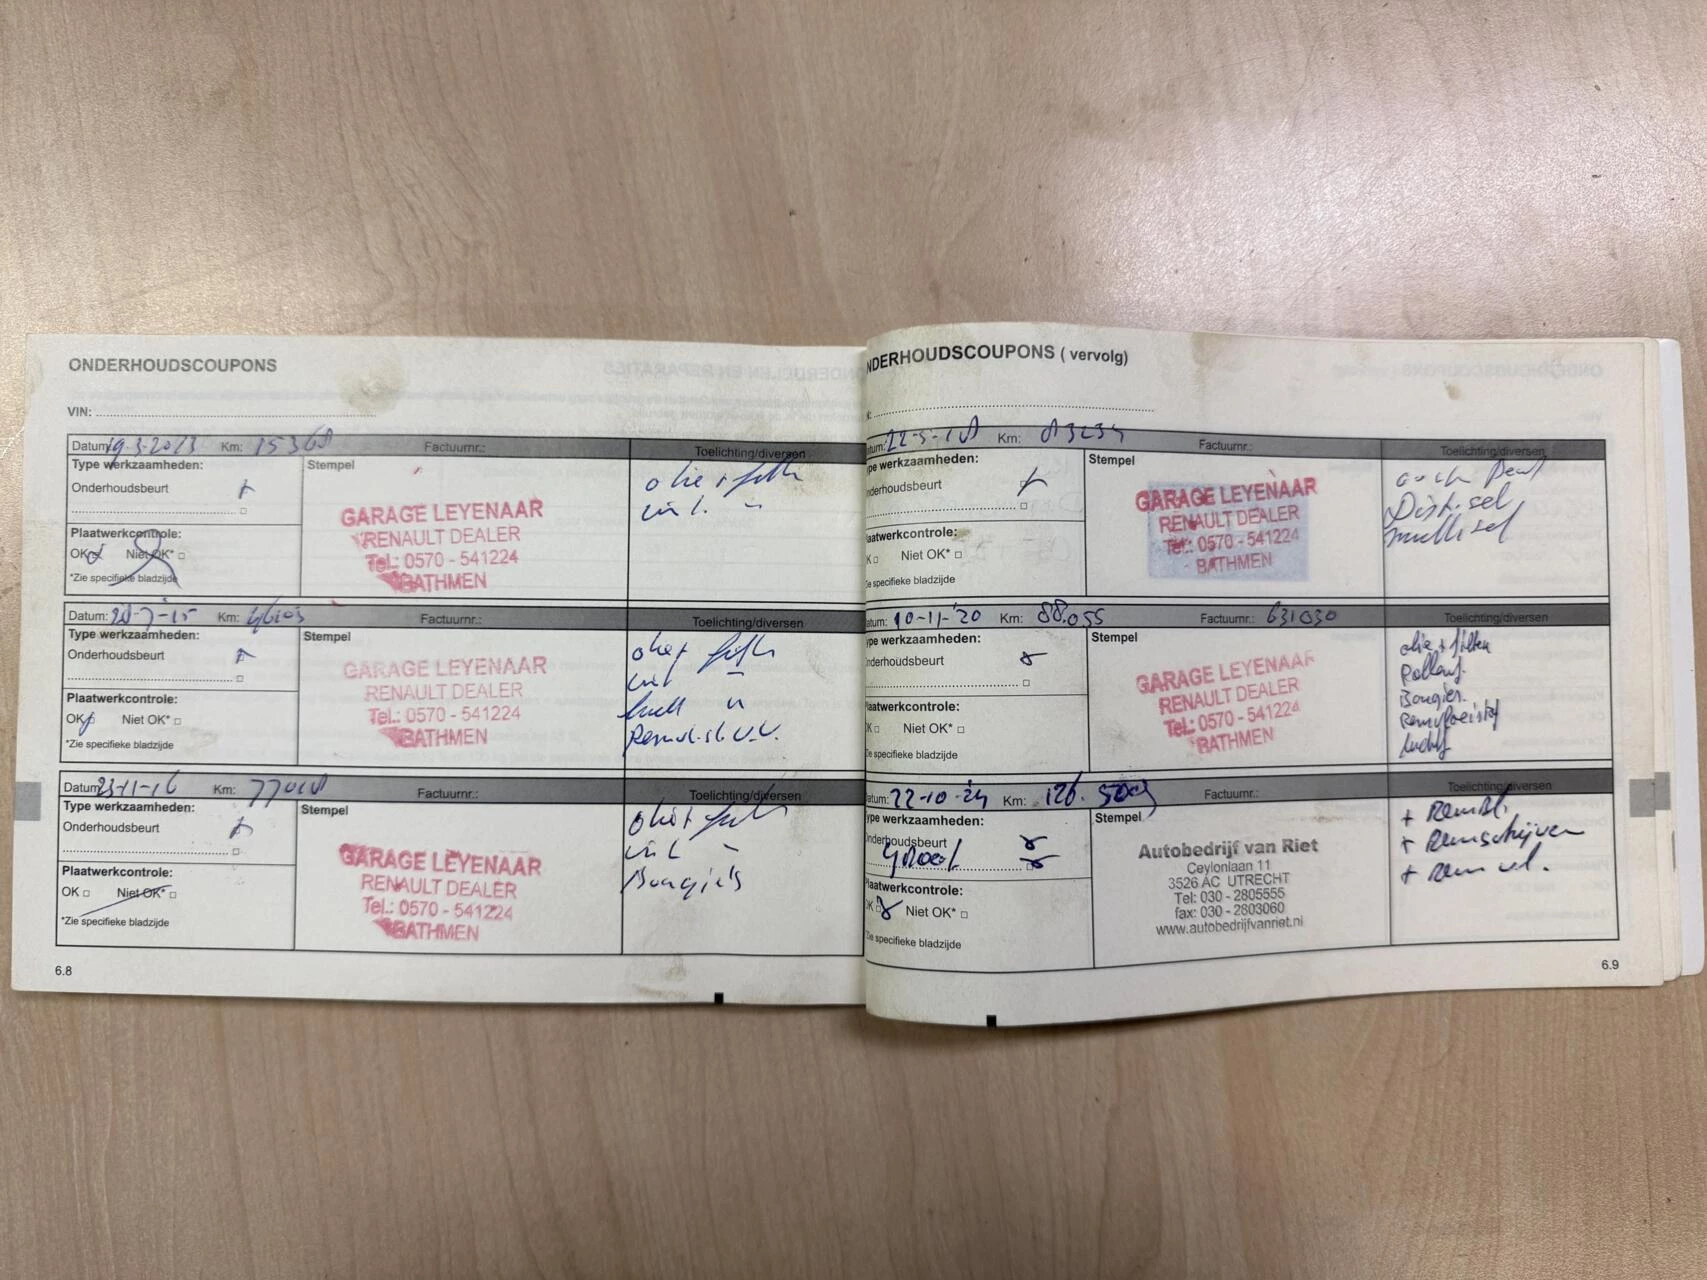 ONDERHOUDSCOUPONS
VIN:
Datum: 19-3-2013 Km: 15368 Factuurnr.: Toelichting/diversen
Type werkzaamheden:
Onderhoudsbeurt
Plaatwerkcontrole:
OK Niet OK*
*Zie specifieke bladzijde
Stempel
GARAGE LEYENAAR
RENAULT DEALER
Tel.: 0570 - 541224
BATHMEN
olie +
Datum: 20-7-15 Km: Factuurnr.: Toelichting/diversen
Type werkzaamheden:
Onderhoudsbeurt
Plaatwerkcontrole:
OK Niet OK*
*Zie specifieke bladzijde
Stempel
GARAGE LEYENAAR
RENAULT DEALER
Tel.: 0570 - 541224
BATHMEN
olie +
Datum: 23-11-16 Km: 77018 Factuurnr.: Toelichting/diversen
Type werkzaamheden:
Onderhoudsbeurt
Plaatwerkcontrole:
OK Niet OK*
*Zie specifieke bladzijde
Stempel
GARAGE LEYENAAR
RENAULT DEALER
Tel.: 0570 - 541224
BATHMEN
olie +
Bougies
6.8
NDERHOUDSCOUPONS ( vervolg)
atum: 22-5-18 Km: 83234 Factuurnr.: Toelichting/diversen
pe werkzaamheden:
nderhoudsbeurt
laatwerkcontrole:
K Niet OK*
ie specifieke bladzijde
Stempel
GARAGE LEYENAAR
RENAULT DEALER
Tel.: 0570 - 541224
BATHMEN
atum: 10-11-'20 Km: 88.055 Factuurnr.: 631030 Toelichting/diversen
ype werkzaamheden:
nderhoudsbeurt
laatwerkcontrole:
K Niet OK*
Zie specifieke bladzijde
Stempel
GARAGE LEYENAAR
RENAULT DEALER
Tel.: 0570 - 541224
BATHMEN
olie + filter
Pollenf.
Bougies.
Remvloeistof
luchtf
atum: 22-10-'24 Km: 126. Factuurnr.: Toelichting/diversen
ype werkzaamheden:
Onderhoudsbeurt
Groot
Plaatwerkcontrole:
OK Niet OK*
*Zie specifieke bladzijde
Stempel
Autobedrijf van Riet
Ceylonlaan 11
3526 AC UTRECHT
Tel: 030 - 2805555
fax: 030 - 2803060
www.autobedrijfvanriet.nl
+ Rembl.
+ Remschijven
+ Rem vl.
6.9